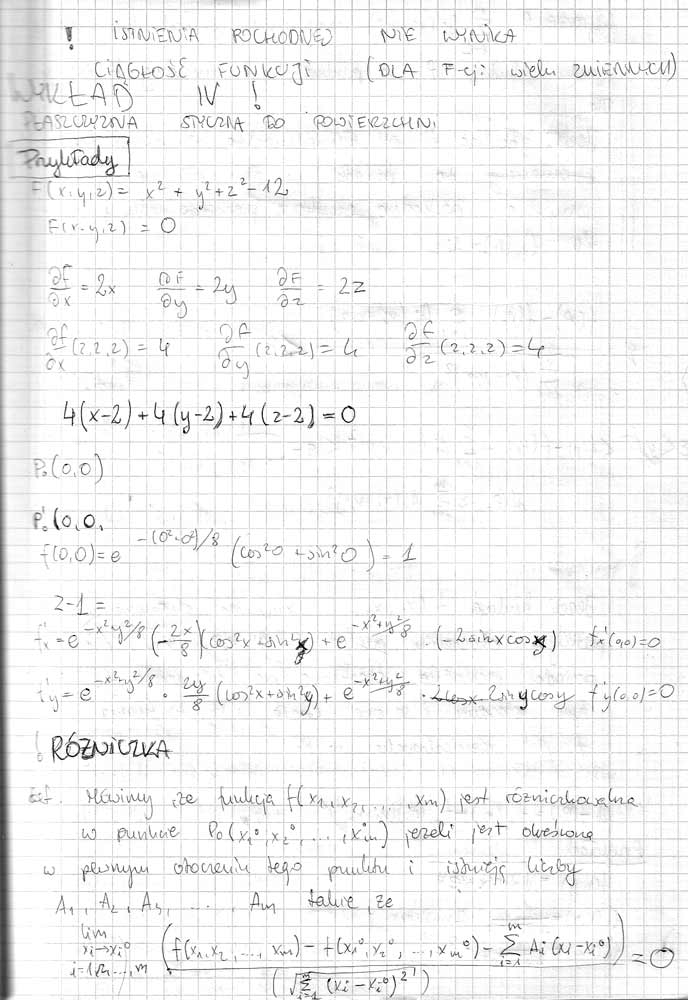 ! ISTNIENIA POCHODNEJ NIE WYNIKA
CIĄGŁOŚĆ FUNKCJI (DLA F-cji wielu zmiennych)
WYKŁAD IV !
PŁASZCZYZNA STYCZNA DO POWIERZCHNI
Przykłady
F(x,y,z) = x² + y² + z² - 12
F(x,y,z) = 0
∂F/∂x = 2x ∂F/∂y = 2y ∂F/∂z = 2z
∂f/∂x (2,2,2) = 4 ∂f/∂y (2,2,2) = 4 ∂f/∂z (2,2,2) = 4
4(x-2) + 4(y-2) + 4(z-2) = 0
P₀(0,0)
P₀'(0,0,
f(0,0) = e^(-(0²+0²)/8) (cos²0 + sin²0) = 1
z-1 =
f'x = e^(-x²+y²/8) (-2x/8)(cos²x + sin²y) + e^(-x²+y²/8) · (-2sinxcosx) f'x(0,0) = 0
f'y = e^(-x²+y²/8) · 2y/8 (cos²x + sin²y) + e^(-x²+y²/8) · 2sinycosy f'y(0,0) = 0
! RÓŻNICZKA
Def. Mówimy, że funkcja f(x₁, x₂, ..., xm) jest różniczkowalna
w punkcie P₀(x₁⁰, x₂⁰, ..., xm⁰) jeżeli jest określona
w pewnym otoczeniu tego punktu i istnieją liczby
A₁, A₂, A₃, ..., Am takie, że
lim xi→xi⁰ i=1,2,...,m (f(x₁, x₂, ..., xm) - f(x₁⁰, x₂⁰, ..., xm⁰) - Σ i=1 m Ai(xi - xi⁰)) / (√(Σ i=1 m (xi - xi⁰)²)) = 0